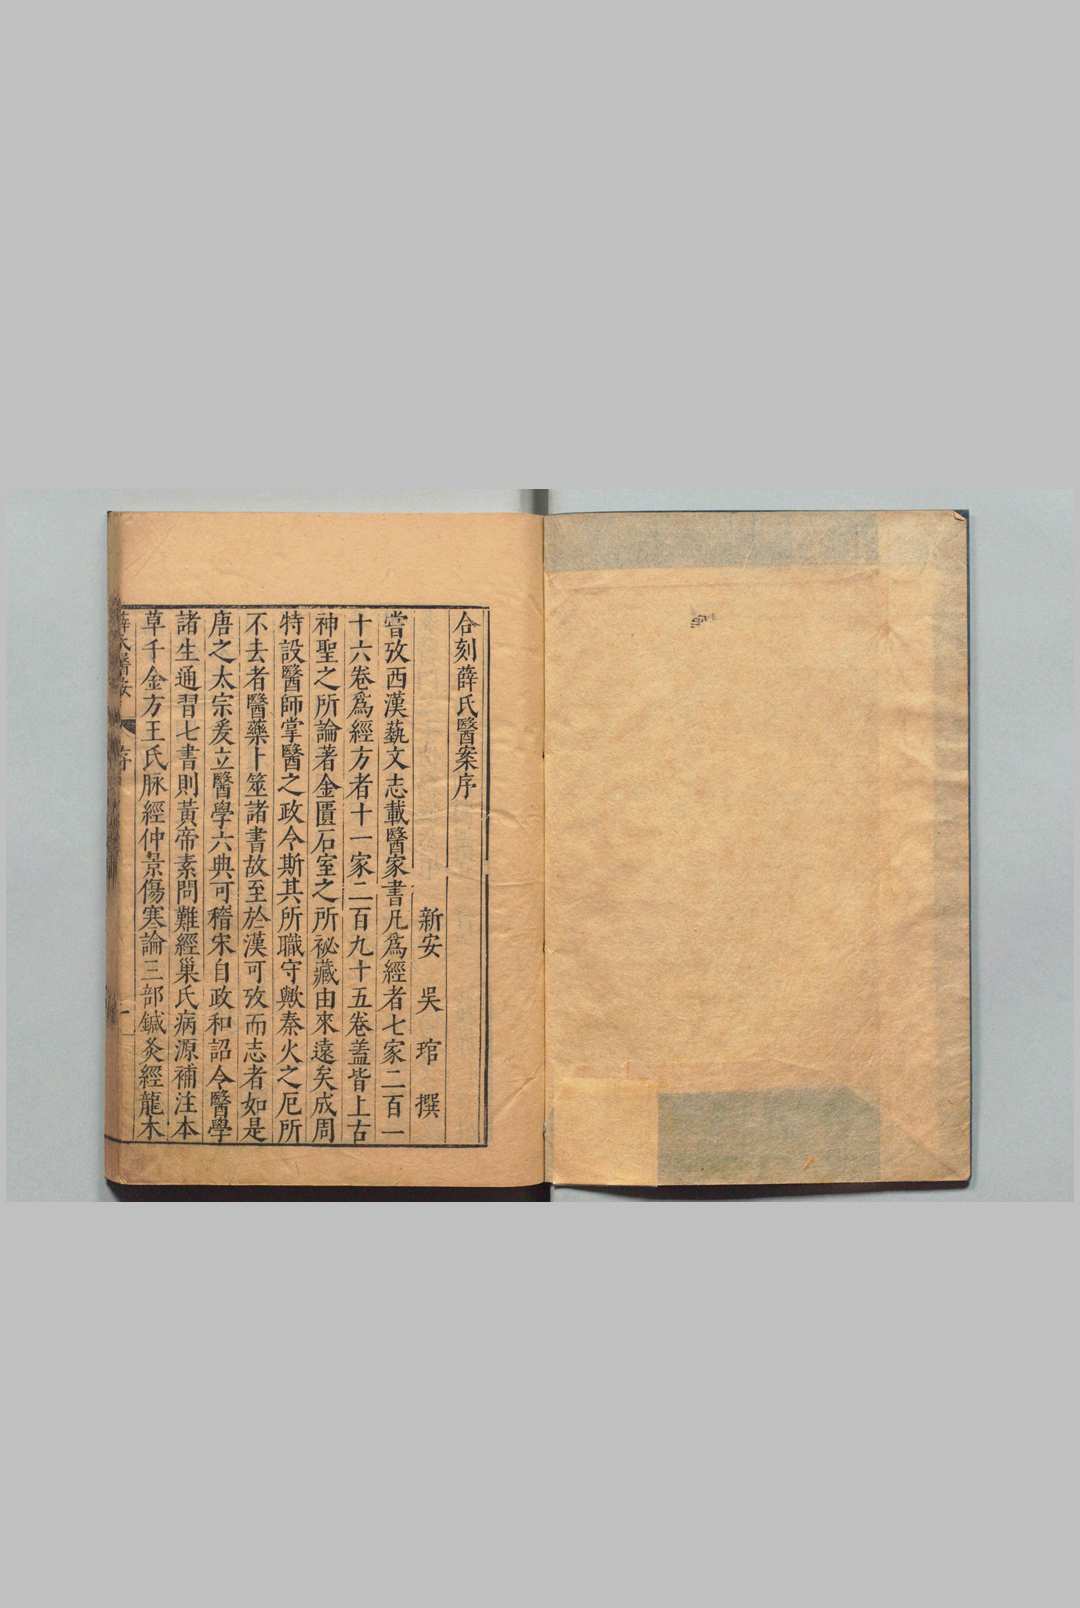 合刻薛氏醫案序
新安 吳 琯 撰
嘗攷西漢藝文志載醫家書凡爲經者七家二百一
十六卷爲經方者十一家二百九十五卷蓋皆上古
神聖之所論著金匱石室之所祕藏由來遠矣成周
特設醫師掌醫之政令斯其所職守歟秦火之厄所
不去者醫藥卜筮諸書故至於漢可攷而志者如是
唐之太宗爰立醫學六典可稽宋自政和詔令醫學
諸生通習七書則黃帝素問難經巢氏病源補注本
草千金方王氏脉經仲景傷寒論三部鍼灸經龍木
薛氏醫案 序 一